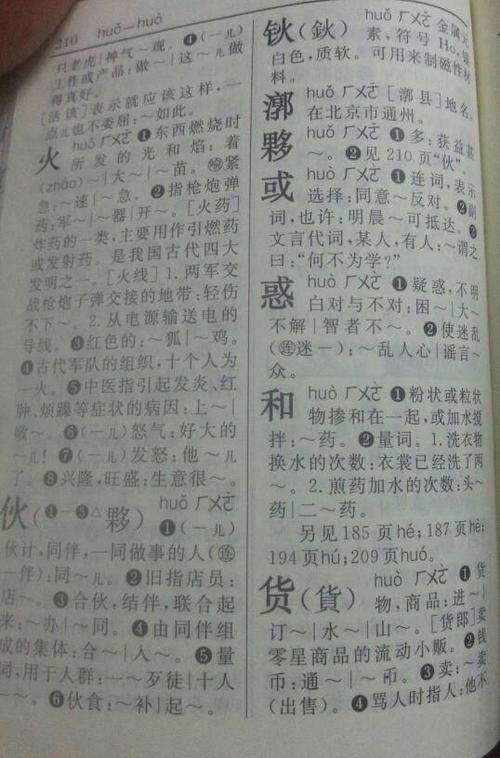 210 huǒ—huò
只老虎|神气～现。❹(一儿)
工作或产品:做～|这～儿做
得真好。
[活该]表示就应该这样,一
点儿也不委屈:～如此。
火 huǒ ㄏㄨㄛˇ ❶东西燃烧时
所发的光和焰:着
(zháo)～|大～|～苗。㊀紧
急:～速|～急。❷指枪炮弹
药:军～|～器|开～。[火药]
炸药的一类,主要用作引燃药
或发射药。是我国古代四大
发明之一。[火线]1.两军交
战枪炮子弹交接的地带:轻伤
不下～。2.从电源输送电的
导线。❸红色的:～狐|～鸡。
❹古代军队的组织,十个人为
一火。❺中医指引起发炎、红
肿、烦躁等症状的病因:上～|
败～。❻(一儿)怒气:好大的
～儿!❼(一儿)发怒:他～儿
了。❽兴隆,旺盛:生意很～。
伙(❶—❺△夥) huǒ ㄏㄨㄛˇ
❶(一儿)
伙计,同伴,一同做事的人(㊀
一伴):同～儿。❷旧指店员:
店～。❸合伙,结伴,联合起
来:～办|～同。❹由同伴组
成的集体:合～|入～。❺量
词,用于人群:一～歹徒|十人
一～。❻伙食:～补|起～。
钬(鈥) huǒ ㄏㄨㄛˇ 金属元
素,符号 Ho,银
白色,质软。可用来制磁性材
料。
漷 huǒ ㄏㄨㄛˇ [漷县]地名,
在北京市通州。
夥 huǒ ㄏㄨㄛˇ ❶多:获益甚
～。❷见210页“伙”。
或 huò ㄏㄨㄛˋ ❶连词,表示
选择:同意～反对。❷副
词,也许:明晨～可抵达。❸
文言代词,某人,有人:～谓之
曰:“何不为学?”
惑 huò ㄏㄨㄛˋ ❶疑惑,不明
白对与不对:困～|大～
不解|智者不～。❷使迷乱
(㊀迷一):～乱人心|谣言～
众。
和 huò ㄏㄨㄛˋ ❶粉状或粒状
物掺和在一起,或加水搅
拌:～药。❷量词。1.洗衣物
换水的次数:衣裳已经洗了两
～。2.煎药加水的次数:头～
药|二～药。
另见185页hé;187页hè;
194页hú;209页huó。
货(貨) huò ㄏㄨㄛˋ ❶货
物,商品:进～|
订～|水～|山～。[货郎]卖
零星商品的流动小贩。❷钱
币:通～|～币。❸卖:～卖
(出售)。❹骂人时指人:他不